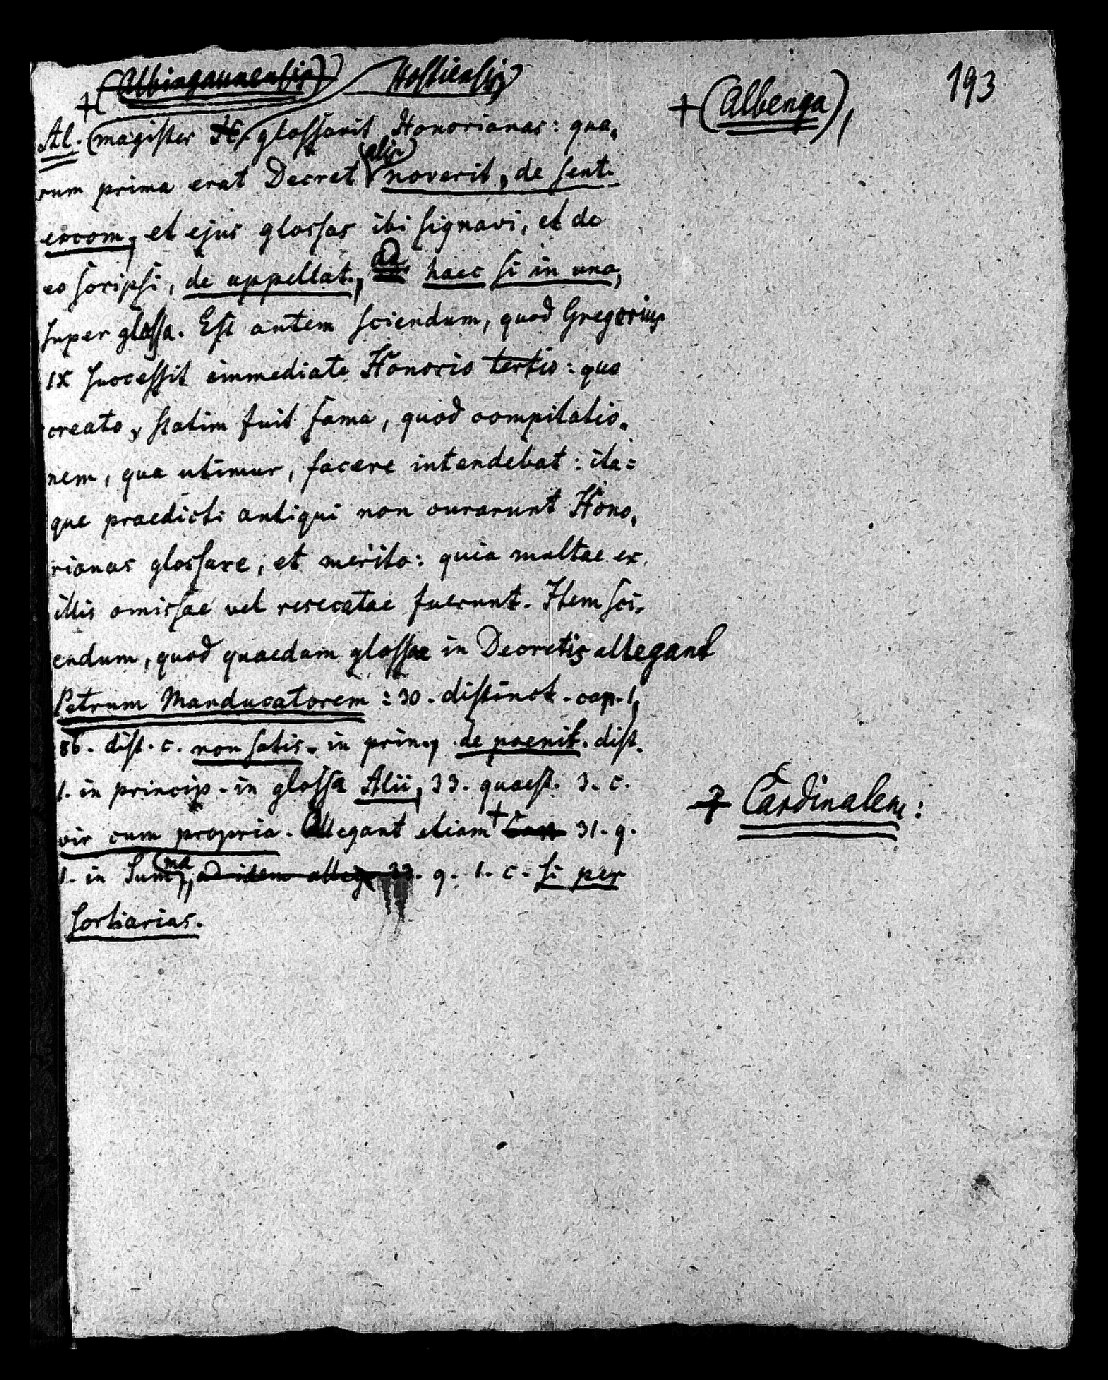 193
(Albingaunensis) Hostiensis
+ (Albenga),
Al. (magister H. glossavit Honorianas: qua,
rum prima erat Decret (alir) noverit, de sent.
excom, et ejus glossas ibi signavi, et de
eo scripsi, de appellat., ad. haec si in una,
super glossa. Est autem sciendum, quod Gregorius
IX successit immediate Honorio tertio: quo
creato, statim fuit fama, quod compilatio,
nem, qua utimur, facere intendebat: ita=
que praedicti antiqui non curarunt Hono,
rianas glossare, et merito: quia multae ex
illis omissae vel resecatae fuerunt. Item sci,
endum, quod quaedam glossae in Decretis allegant
Petrum Manducatorem: 30. distinct. cap. 1,
86. dist. c. non satis. in prin., de poenit. dist.
1. in princip. in glossa Alii, 33. quaest. 3. c.
vir cum propria. Allegant etiam + Can 31. q.
+ Cardinalem:
1. in Summa, ad idem alleg 33. q. 1. c. si per
sortiarias.